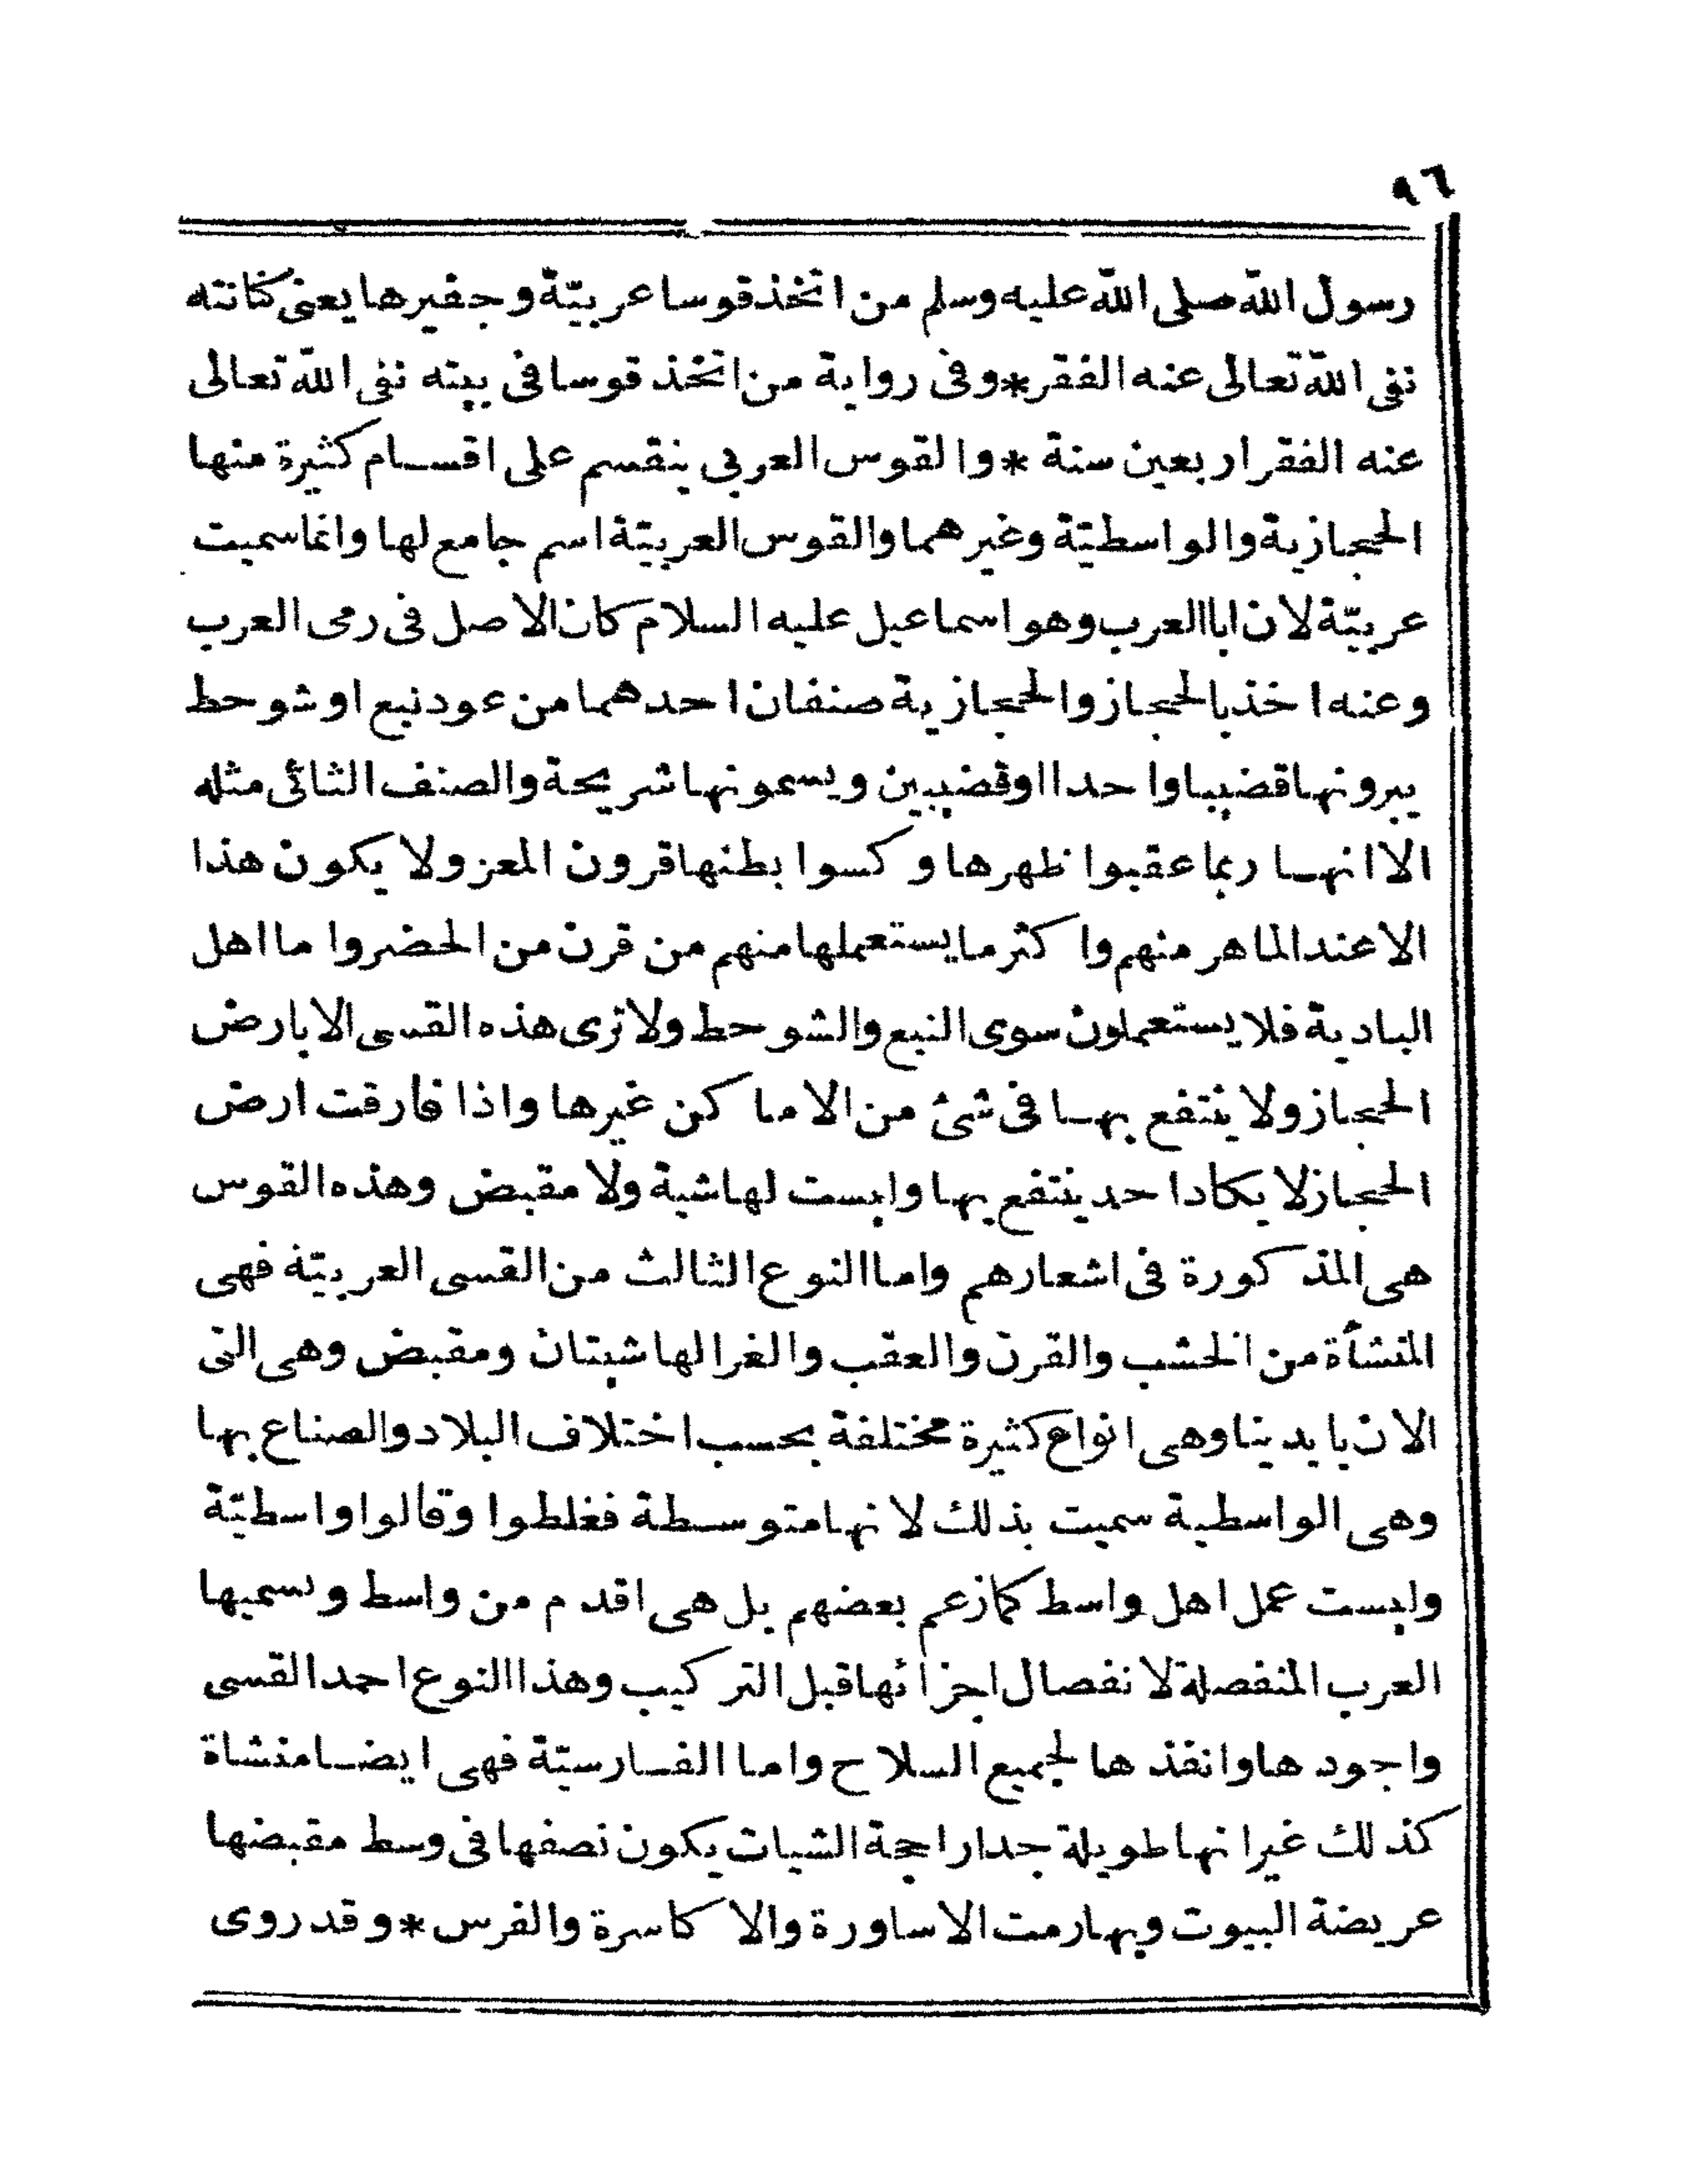 ٩٦
رسول الله صلى الله عليه وسلم من اتخذ قوسا عربيّة وجفيرها يعنى كنانته
نفى الله تعالى عنه الفقر * وفى رواية من اتخذ قوسا فى بيته نفى الله تعالى
عنه الفقر اربعين سنة * والقوس العربى ينقسم على اقسام كثيرة منها
الحجازية والواسطيّة وغيرهما والقوس العربيّة اسم جامع لها وانما سميت
عربيّة لان ابا العرب وهو اسماعيل عليه السلام كان الاصل فى رمى العرب
وعنه اخذ بالحجاز والحجازية صنفان احدهما من عود نبع او شوحط
يبرونها قضيبا واحدا اوقضيبين ويسمونها شريحة والصنف الثانى مثله
الا انها ربما عقبوا ظهرها وكسوا بطنها قرون المعز ولا يكون هذا
الا عند الماهر منهم واكثر ما يستعملها منهم من قرن من الحضر واما اهل
البادية فلا يستعملون سوى النبع والشوحط ولا ترى هذه القسى الا بارض
الحجاز ولا ينتفع بها فى شئ من الاماكن غيرها واذا فارقت ارض
الحجاز لا يكاد احد ينتفع بها وليست لها شية ولا مقبض وهذه القوس
هى المذكورة فى اشعارهم واما النوع الثالث من القسى العربيّة فهى
المنشأة من الخشب والقرن والعقب والغرا لها شيتان ومقبض وهى التى
الان بايدينا وهى انواع كثيرة مختلفة بحسب اختلاف البلاد والصناع بها
وهى الواسطية سميت بذلك لانها متوسطة فغلطوا وقالوا واسطيّة
وليست عمل اهل واسط كما زعم بعضهم بل هى اقدم من واسط وتسميها
العرب المنفصلة لانفصال اجزائها قبل التركيب وهذا النوع احمد القسى
واجودها وانفذها لجميع السلاح واما الفارسيّة فهى ايضا منشاة
كذلك غير انها طويلة جدا راجحة الشيات يكون نصفها فى وسط مقبضها
عريضة البيوت وبها رمت الاساورة والاكاسرة والفرس * وقد روى